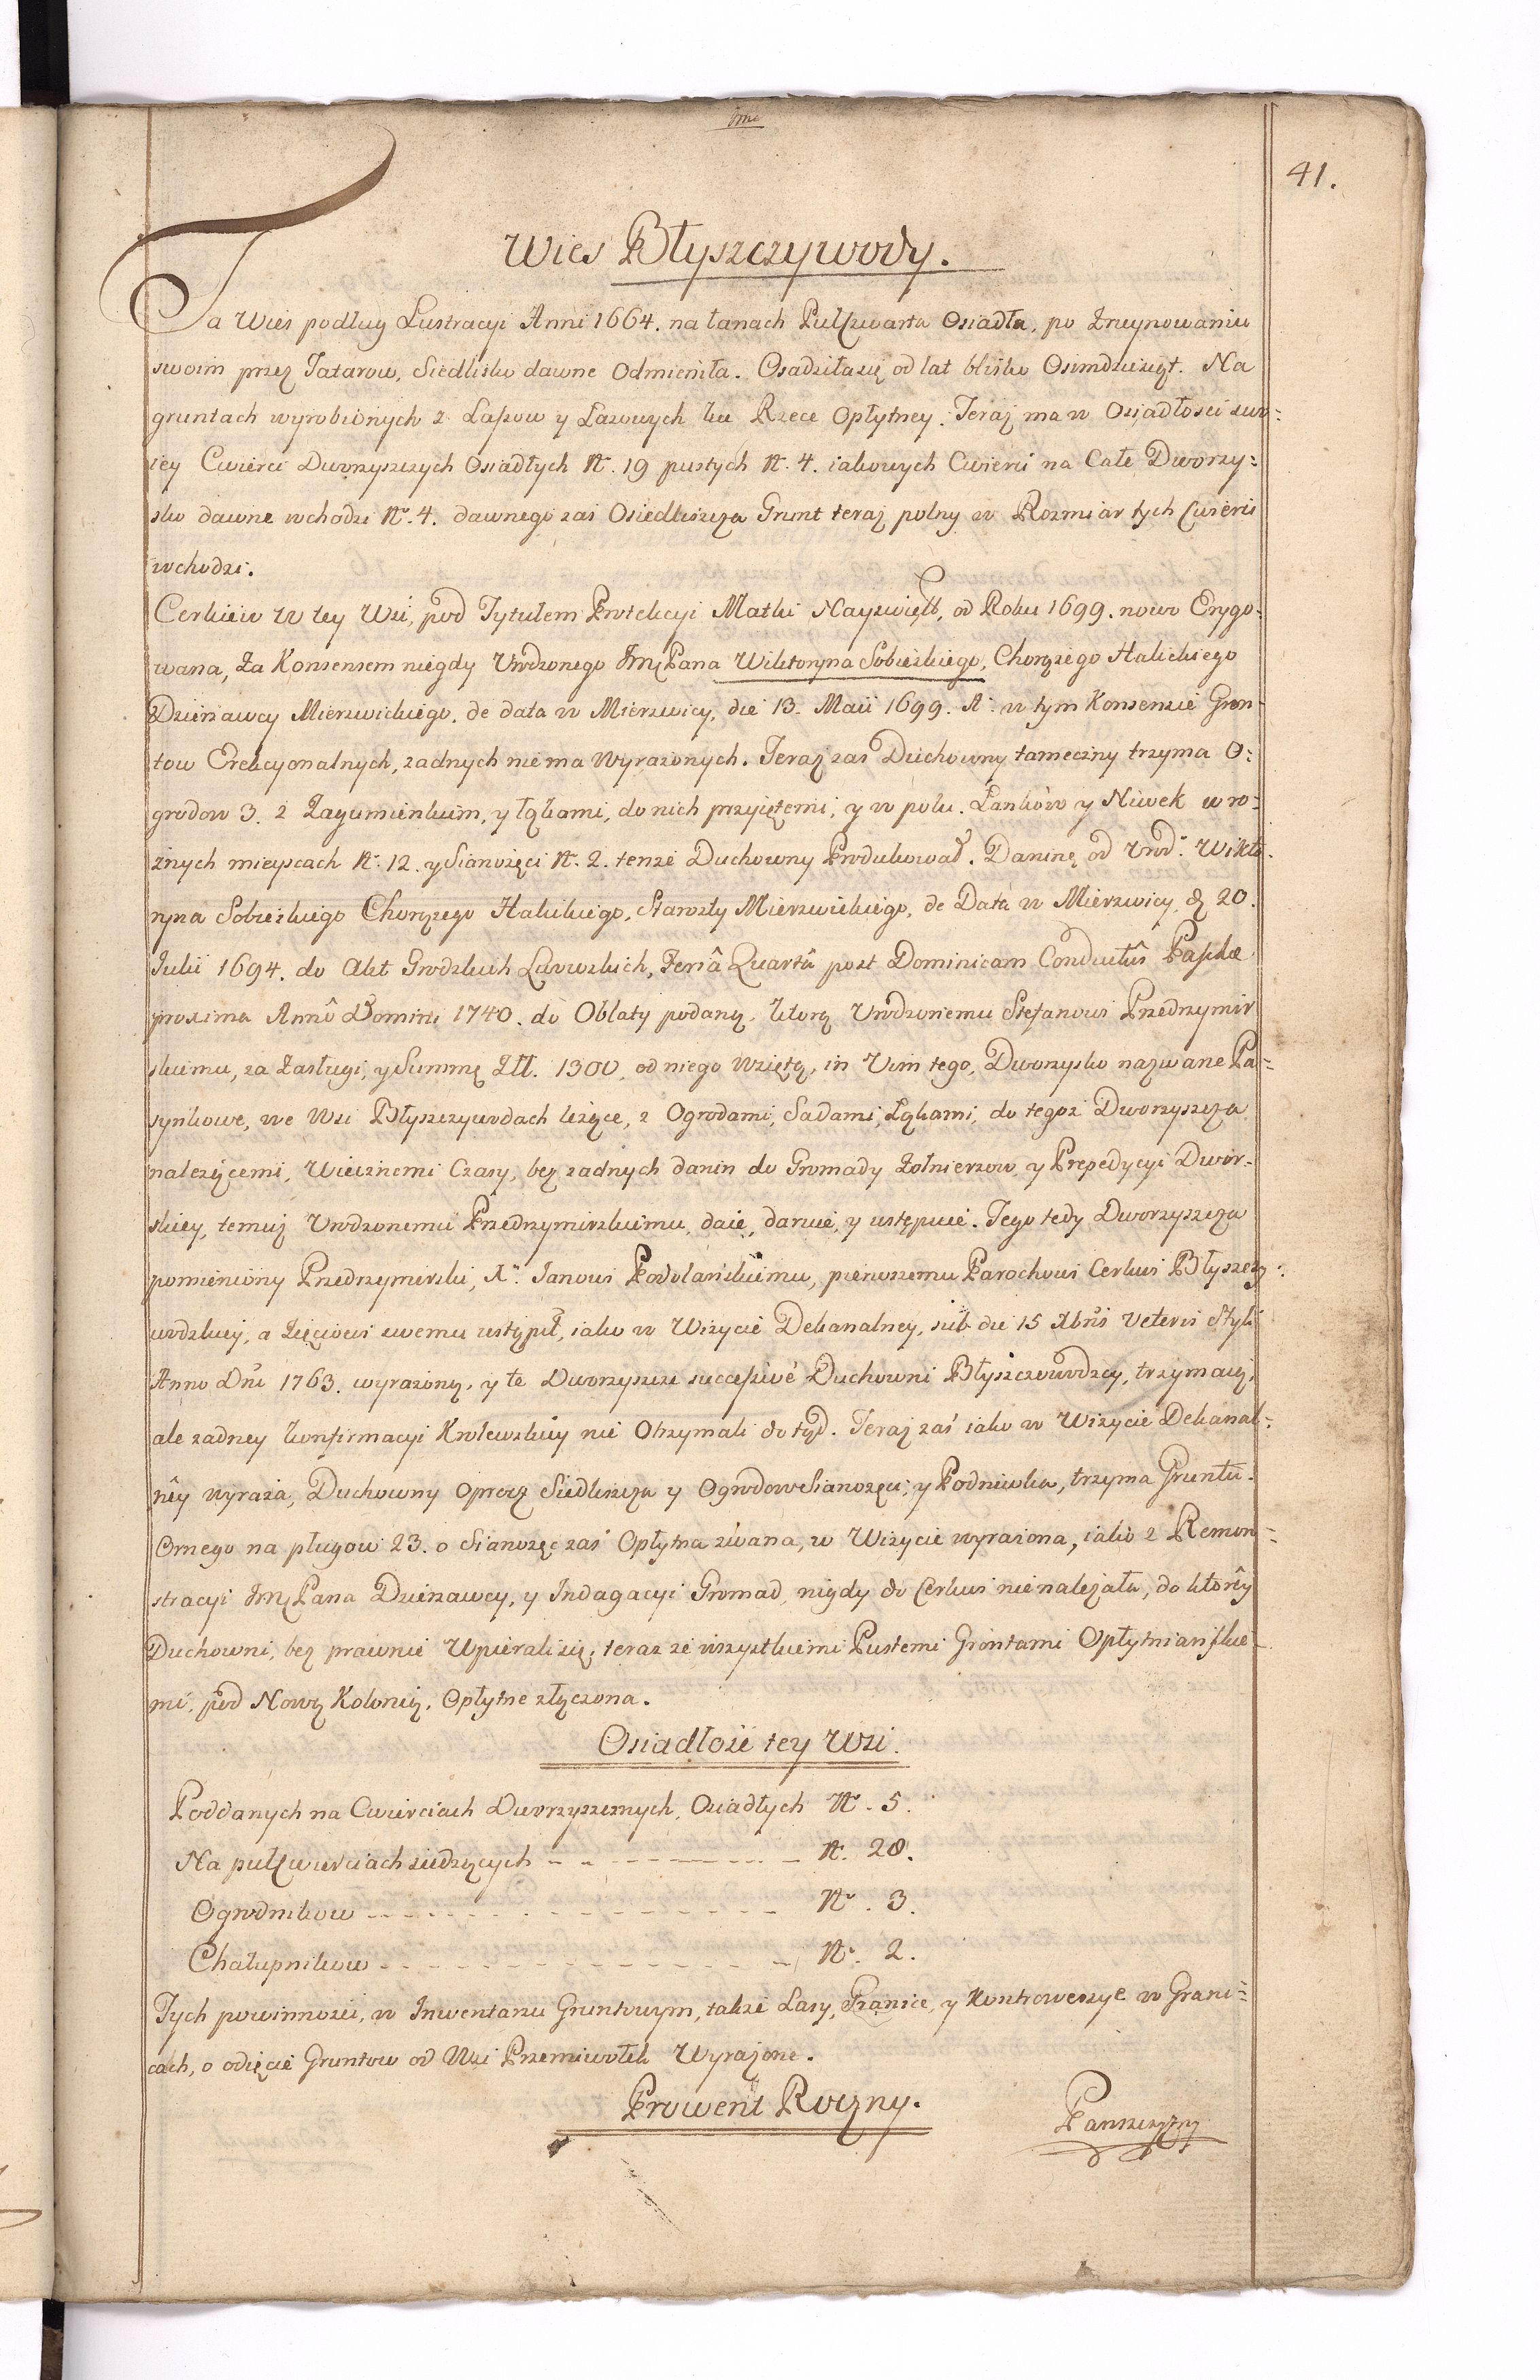 41.
Wies Błyszczywody.
Ta Wies podług Lustracyi Anni 1664. na łanach Pułszwarta Osiadła, po Zruynowaniu
swoim przez Tatarow, Siedlisko dawne Odmieniła. Osadziła się od lat blisko Osimdziesiąt. Na
gruntach wyrobionych z Lasow y Lazowych ku Rzece Opłytney. Teraz ma w Osiadłosci swo=
iey Cwierci Dworzyszczych Osiadłych No. 19 pustych No. 4. iakowych Cwierci na Całe Dworzy=
sko dawne wchodzi No. 4. dawnego zas Osiedliszcza Grunt teraz polny w Rozmiar tych Cwierci
wchodzi.
Cerkiew w tey Wsi, pod Tytułem Protekcyi Matki Nayswięt, od Roku 1699. nowo Erygo=
wana, za Konsensem niegdy Urodzonego JmęPana Wiktoryna Sobieskiego, Chorązego Halickiego
Dzierzawcy Mierzwickiego, de data w Mierzwicy, die 13. Maii 1699. A. w tym Konsensie Grun=
tow Erekcyonalnych, zadnych niema Wyrazonych. Teraz zas Duchowny tameczny trzyma O=
grodow 3. z Zagumienkiem, y łąkami, do nich przyiętemi, y w polu. Lankow y Niwek w ro=
żnych mieyscach No. 12. y Sianożęci No. 2. tenże Duchowny Produkował. Daninę od Urod. Wikto=
ryna Sobieskiego Chorązego Halickiego, Starosty Mierzwickiego, de Data w Mierzwicy, d. 20.
Julii 1694. do Akt Grodzkich Lwowskich, Feriâ Quartâ post Dominicam Conductûs Paschæ
proxima Annô Domini 1740. do Oblaty podaną, ktorą Urodzonemu Stefanowi Przedrzymir
skiemu, za Zasługi, y Summę Złł. 1300, od niego Wziętą, in Vim tego, Dworzysko nazwane Pa=
synkowe, we Wsi Błyszczywodach leżące, z Ogrodami, Sadami, Łąkami, do tegoż Dworzyszcza
nalezącemi, Wiecznemi Czasy, bez zadnych danin do Gromady Zołnierzow, y Prepedycyi Dwor=
skiey, temuż Urodzonemu Przedrzymirskiemu, daie, daruie, y ustępuie. Tego tedy Dworzyszcza
pomieniony Przedrzymirski, X. Janowi Podolańskiemu, pierwszemu Parochowi Cerkwi Błyszczy=
wodzkiey, a Zięciowi swemu ustąpił, iako w Wizycie Dekanalney, sub die 15 Xbris Veteris Styli
Anno Dni 1763. wyrazono, y te Dworzyszcze successive Duchowni Błyszczowodzcy, trzymaią,
ale zadney konfirmacyi Krolewskiey nie Otrzymali do tąd. Teraz zaś iako w Wizycie Dekanal=
ney wyraża, Duchowny oprocz Siedliszcza y Ogrodow Sianozęci, y Podniwka, trzyma Gruntu
Ornego na pługow 23. o Sianozęć zaś Opłytna zwana, w Wizycie wyrazona, iako z Remon=
stracyi JmęPana Dzierzawcy, y Indagacyi Gromad, nigdy do Cerkwi nie należała, do ktorey
Duchowni, bez prawnie Wpierali się, teraz ze wszystkiemi Pustemi Grontami Opłytnianskie=
mi, pod Nową Kolonią, Opłytne złączona.
Osiadłość tey Wsi.
Poddanych na Cwierciach Dworzyszcznych, Osiadłych No. 5.
Na pułćwierciach siedzących No. 28.
Ogrodnikow No. 3.
Chałupnikow No. 2.
Tych powinności, w Inwentarzu Gruntowym, także Lasy, Granice, y Kontrowersye w Grani=
cach, o odięcie Gruntow od Wsi Przemiwołek Wyrażone.
Prowent Roczny.
Panszczyzny